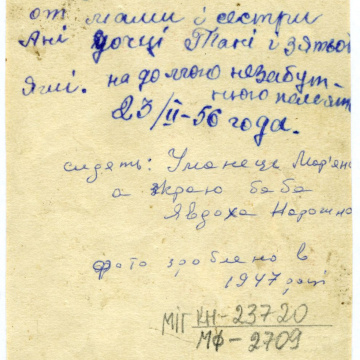 от мами і сестри
Ані дочці Тані і зятьої
на долгою незабут-
ню памят
23/II-56 года.
сидять: Уманець Мар'яна
а скраю баба
Явдоха
фото зроблено в
1947 році
МІГ КН-23720
МФ-2709